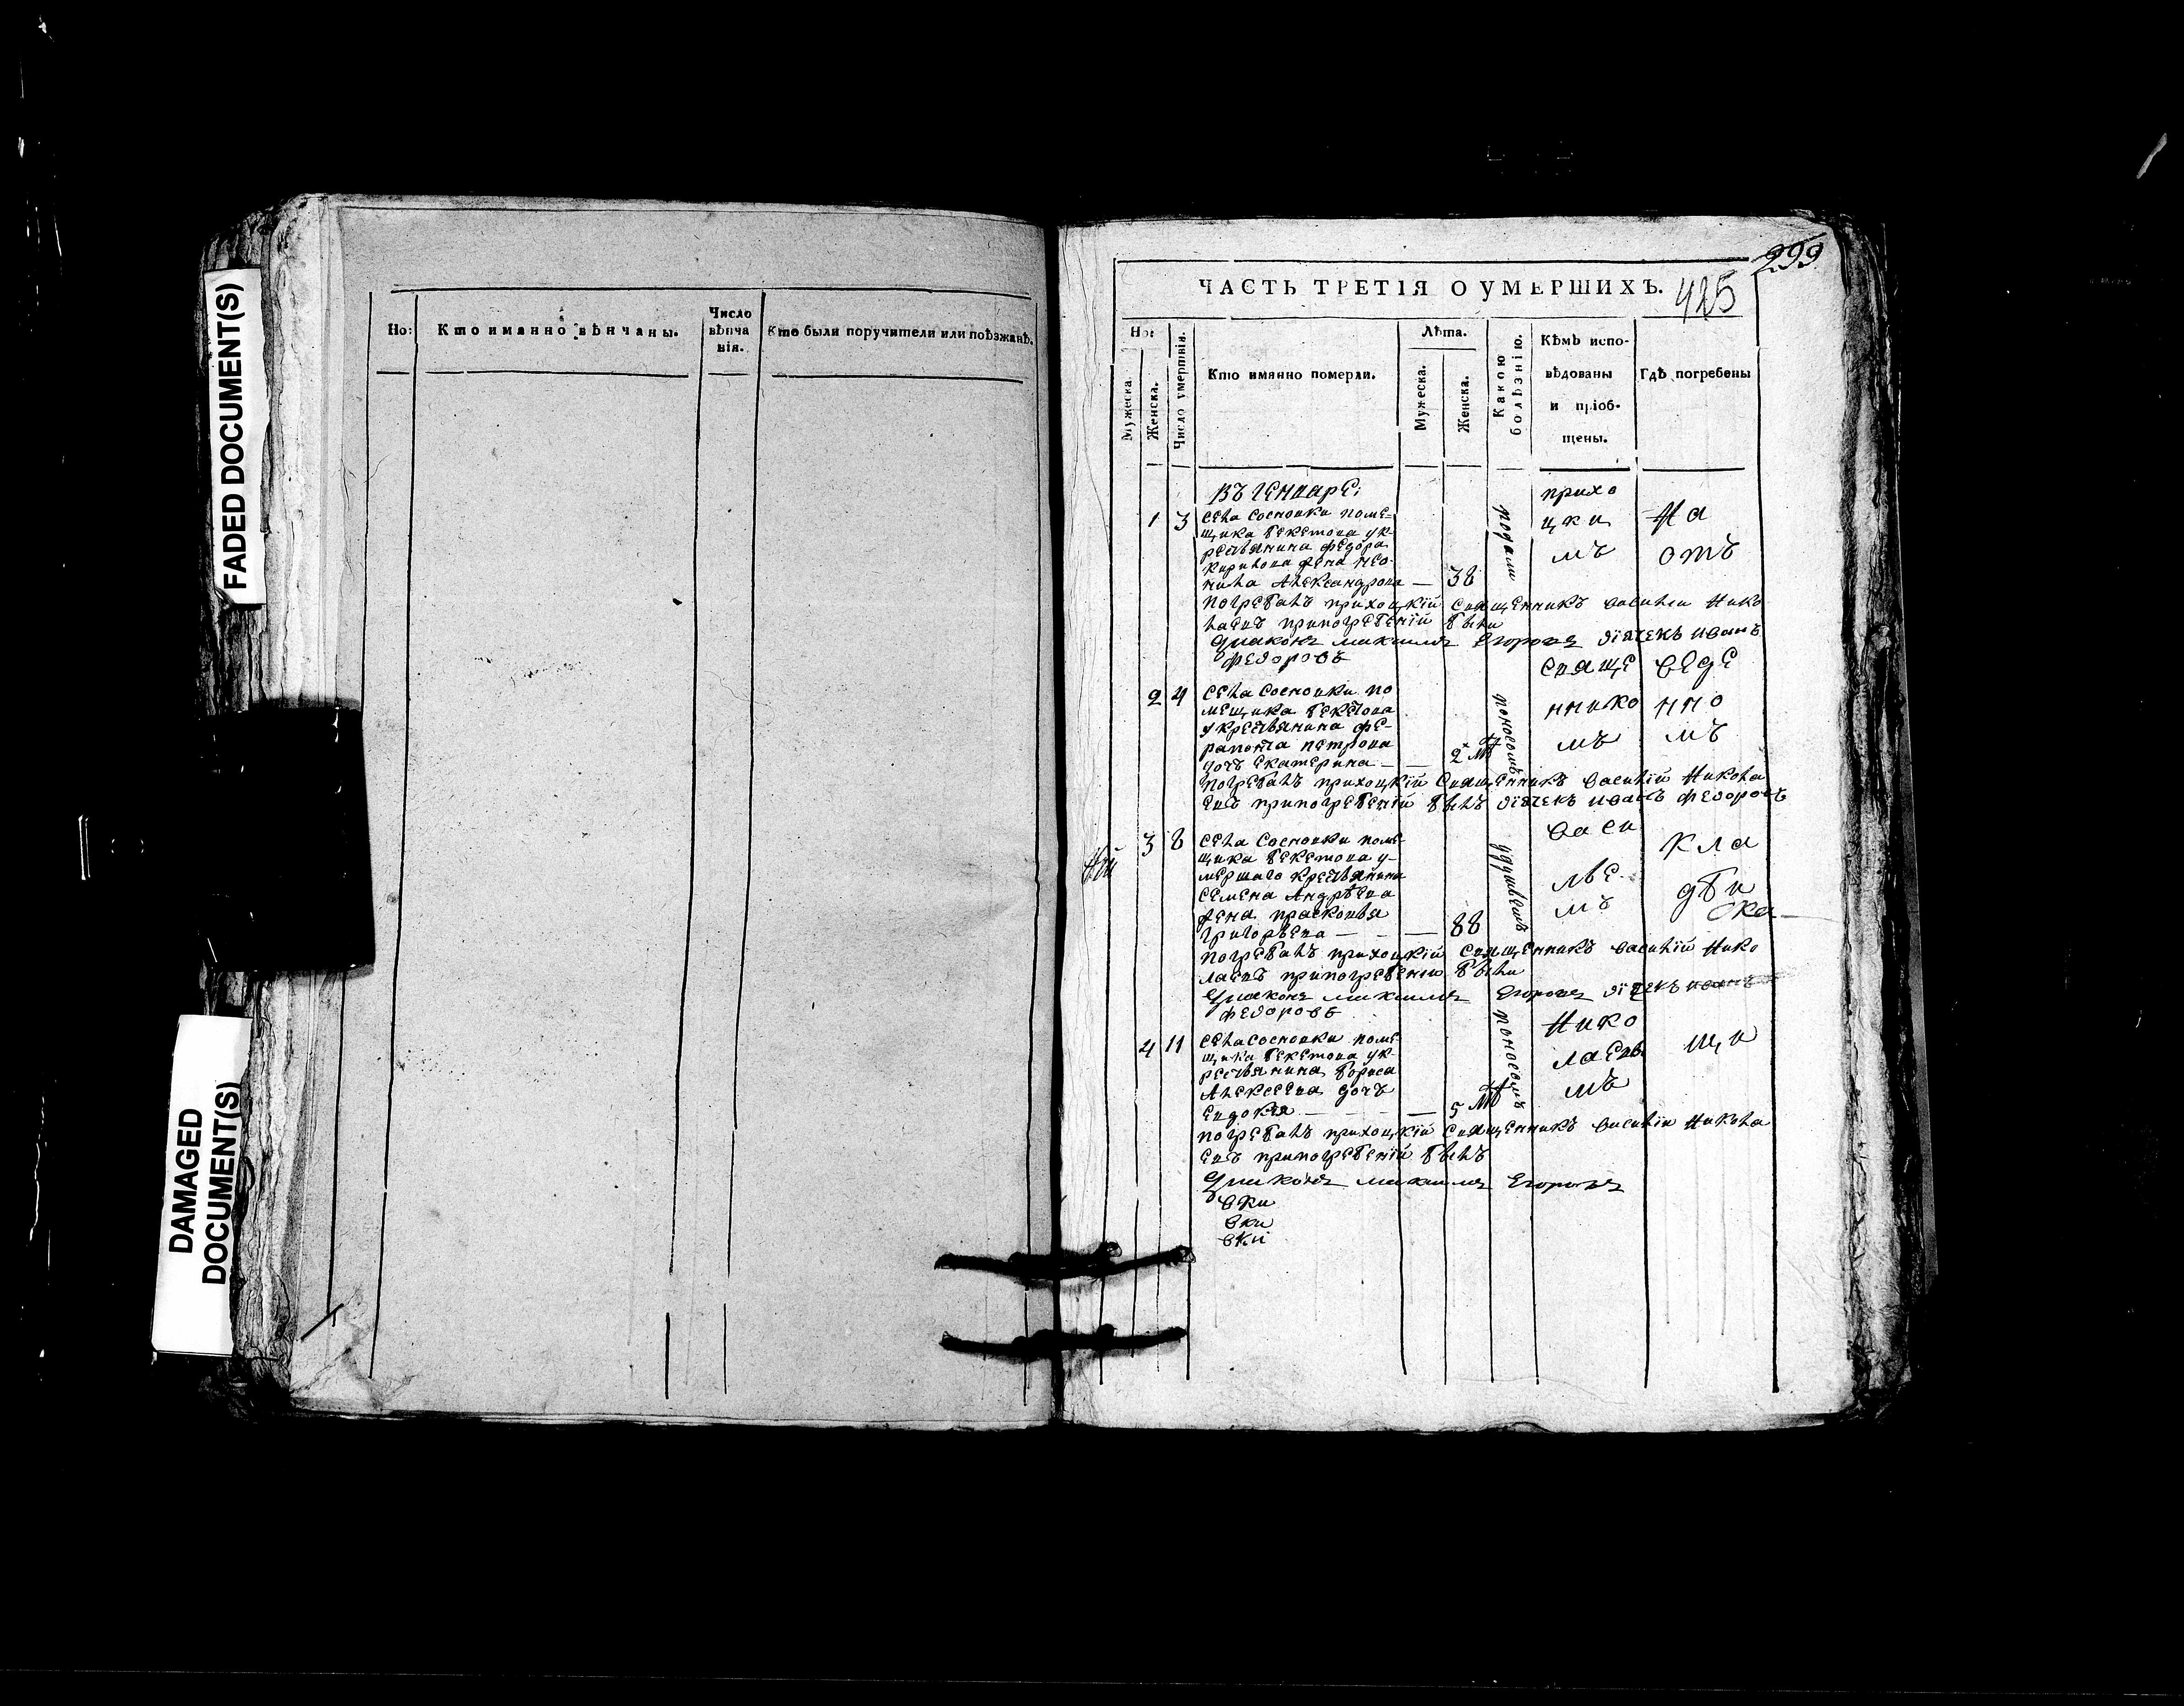 FADED DOCUMENT(S)
DAMAGED
DOCUMENT(S)
Но:
Кто иманно вѣнчаны.
Число
вѣнча
нія.
Кто были поручители или поѣзжанѣ.
299
ЧАСТЬ ТРЕТІЯ О УМЕРШИХЪ.
425
Но:
Мужеска.
Женска.
Число умертвія.
Кто имянно померли.
Лѣта.
Мужеска.
Женска.
Какою
болѣзнію.
Кѣмъ испо-
вѣдованы
и пріоб-
щены.
Гдѣ погребены
въ генваре:
1 3 села Сосновки поме-
щика бекетова ук-
рестьянина федора
кирилова жена нео-
нила Александрова — 38
погребалъ приходкій священникъ василіи Нико
лаевъ припогребеній были
Диаконъ михаилъ Егоровъ діячекъ иванъ
федоровъ
2 4 села Сосновки по
мещика бекетова
укрестьянина фе-
рапонта петрова
дочь екатерина — 2
поносомъ
погребалъ приходкій священникъ василій Никола
евъ припогребеній былъ діячекъ иванъ федоровъ
3 8 села Сосновки поме-
щика бекетова у-
мершаго крестьянина
семена Андрѣева
жена прасковья
григорьева — 88
удушьемъ
погребалъ приходкій священникъ василій Нико
лаевъ припогребеніи были
Диаконъ михаилъ Егоровъ діячекъ иванъ
федоровъ
4 11 села Сосновки поме-
щика бекетова ук-
рестьянина бориса
Алексеева дочь
евдокея — 5
поносомъ
погребалъ приходкій священникъ василіи Никола
евъ припогребеній былъ
Диаконъ михаилъ Егоровъ
прихо
цки
мъ
свяще
ннико
мъ
васи
лье
мъ
Нико
лаевы
мъ
На
отъ
веде
нно
мъ
кла
дби
щи